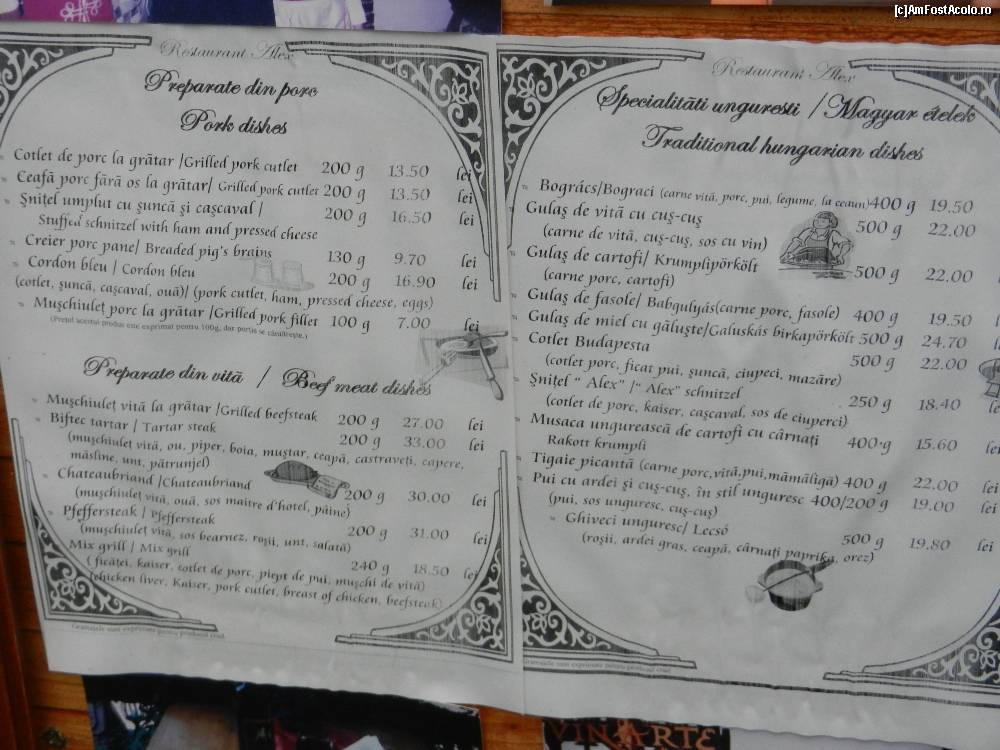 [c]AmFostAcolo.ro
Restaurant Alex
Preparate din porc
Pork dishes
Cotlet de porc la grătar /Grilled pork cutlet 200 g 13.50 lei
Ceafă porc fără os la grătar/ Grilled pork cutlet 200 g 13.50 lei
Șnițel umplut cu șuncă și cașcaval / 200 g 16.50 lei
Stuffed schnitzel with ham and pressed cheese
Creier porc pane/ Breaded pig's brains 130 g 9.70 lei
Cordon bleu / Cordon bleu 200 g 16.90 lei
(cotlet, șuncă, cașcaval, ouă)/ (pork cutlet, ham, pressed cheese, eggs)
Mușchiuleț porc la grătar /Grilled pork fillet 100 g 7.00 lei
(Prețul acestui produs este exprimat pentru 100g, dar porția se cântărește.)
Preparate din vită / Beef meat dishes
Mușchiuleț vită la grătar /Grilled beefsteak 200 g 27.00 lei
Biftec tartar / Tartar steak 200 g 33.00 lei
(mușchiuleț vită, ou, piper, boia, muștar, ceapă, castraveți, capere,
măsline, unt, pătrunjel)
Chateaubriand /Chateaubriand 200 g 30.00 lei
(mușchiuleț vită, ouă, sos maitre d'hotel, pâine)
Pfeffersteak / Pfeffersteak 200 g 31.00 lei
(mușchiuleț vită, sos bearnez, roșii, unt, salată)
Mix grill / Mix grill 240 g 18.50 lei
( ficăței, kaiser, cotlet de porc, piept de pui, mușchi de vită)
(chicken liver, Kaiser, pork cutlet, breast of chicken, beefsteak)
Gramajele sunt exprimate pentru produsul crud.
Restaurant Alex
Specialităti unguresti /Magyar ételek
Traditional hungarian dishes
Bogrács/Bograci (carne vită, porc, pui, legume, la ceaun) 400 g 19.50
Gulaș de vită cu cuș-cuș 500 g 22.00
(carne de vită, cuș-cuș, sos cu vin)
Gulaș de cartofi/ Krumplipörkölt 500 g 22.00
(carne porc, cartofi)
Gulaș de fasole/ Babgulyás(carne porc, fasole) 400 g 19.50
Gulaș de miel cu găluște/Galuskás birkapörkölt 500 g 24.70
Cotlet Budapesta 500 g 22.00
(cotlet porc, ficat pui, șuncă, ciupeci, mazăre)
Șnițel " Alex" /" Alex" schnitzel 250 g 18.40 le
(cotlet de porc, kaiser, cașcaval, sos de ciuperci)
Musaca ungurească de cartofi cu cârnați 400 g 15.60 lei
Rakott krumpli
Tigaie picantă (carne porc,vită,pui,mămăligă) 400 g 22.00 lei
Pui cu ardei și cuș-cuș, în stil unguresc 400/200 g 19.00 lei
(pui, sos unguresc, cuș-cuș)
Ghiveci unguresc/ Lecsó 500 g 19.80 lei
(roșii, ardei gras, ceapă, cârnați paprika, orez)
Gramajele sunt exprimate pentru produsul crud.
VINARTE